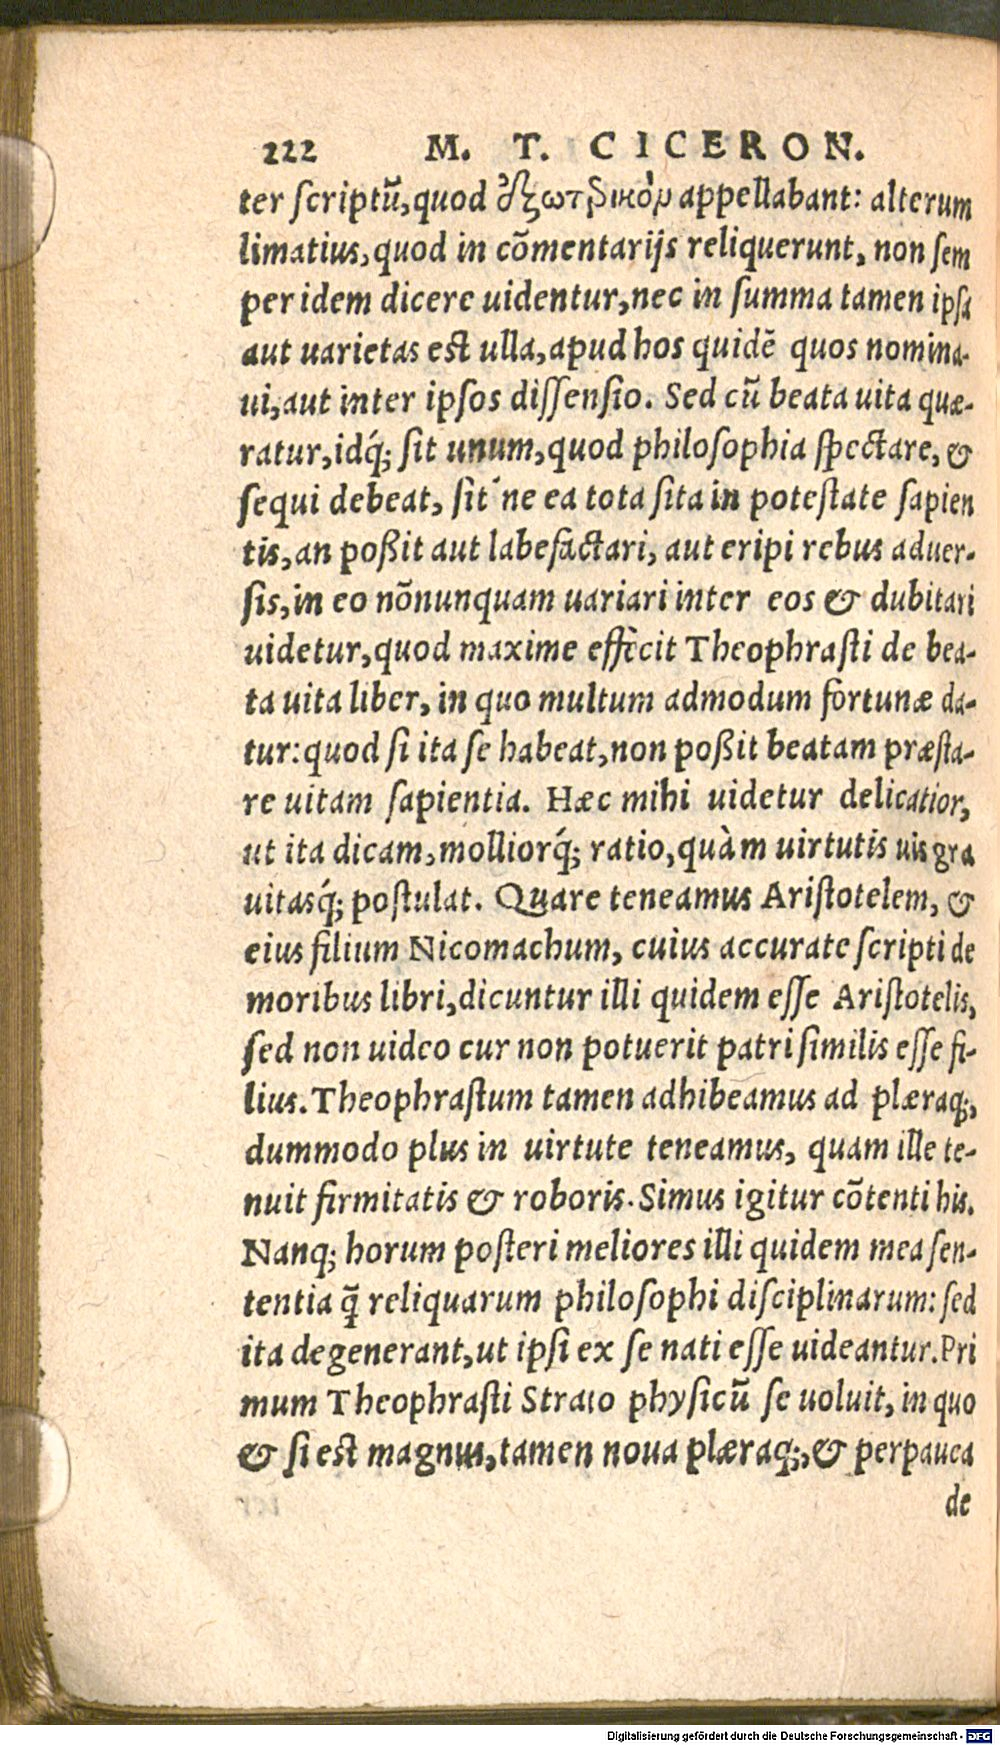 222 M. T. CICERON.
ter scriptũ, quod ἐξωτερικὸν appellabant: alterum
limatius, quod in cõmentarijs reliquerunt, non sem
per idem dicere uidentur, nec in summa tamen ipsa
aut uarietas est ulla, apud hos quidẽ quos nomina-
ui, aut inter ipsos dissensio. Sed cũ beata uita quæ-
ratur, idq́; sit unum, quod philosophia spectare, &
sequi debeat, sit´ne ea tota sita in potestate sapien
tis, an poßit aut labefactari, aut eripi rebus aduer-
sis, in eo nõnunquam uariari inter eos & dubitari
uidetur, quod maxime effecit Theophrasti de bea-
ta uita liber, in quo multum admodum fortunæ da-
tur: quod si ita se habeat, non poßit beatam præsta-
re uitam sapientia. Hæc mihi uidetur delicatior,
ut ita dicam, molliorq́; ratio, quàm uirtutis uis gra
uitasq́; postulat. Quare teneamus Aristotelem, &
eius filium Nicomachum, cuius accurate scripti de
moribus libri, dicuntur illi quidem esse Aristotelis,
sed non uideo cur non potuerit patri similis esse fi-
lius. Theophrastum tamen adhibeamus ad plæraq;,
dummodo plus in uirtute teneamus, quam ille te-
nuit firmitatis & roboris. Simus igitur cõtenti his.
Nanq; horum posteri meliores illi quidem mea sen-
tentia q̃ reliquarum philosophi disciplinarum: sed
ita degenerant, ut ipsi ex se nati esse uideantur. Pri
mum Theophrasti Strato physicũ se uoluit, in quo
& si est magnus, tamen noua plæraq;, & perpauca
de
Digitalisierung gefördert durch die Deutsche Forschungsgemeinschaft - DFG